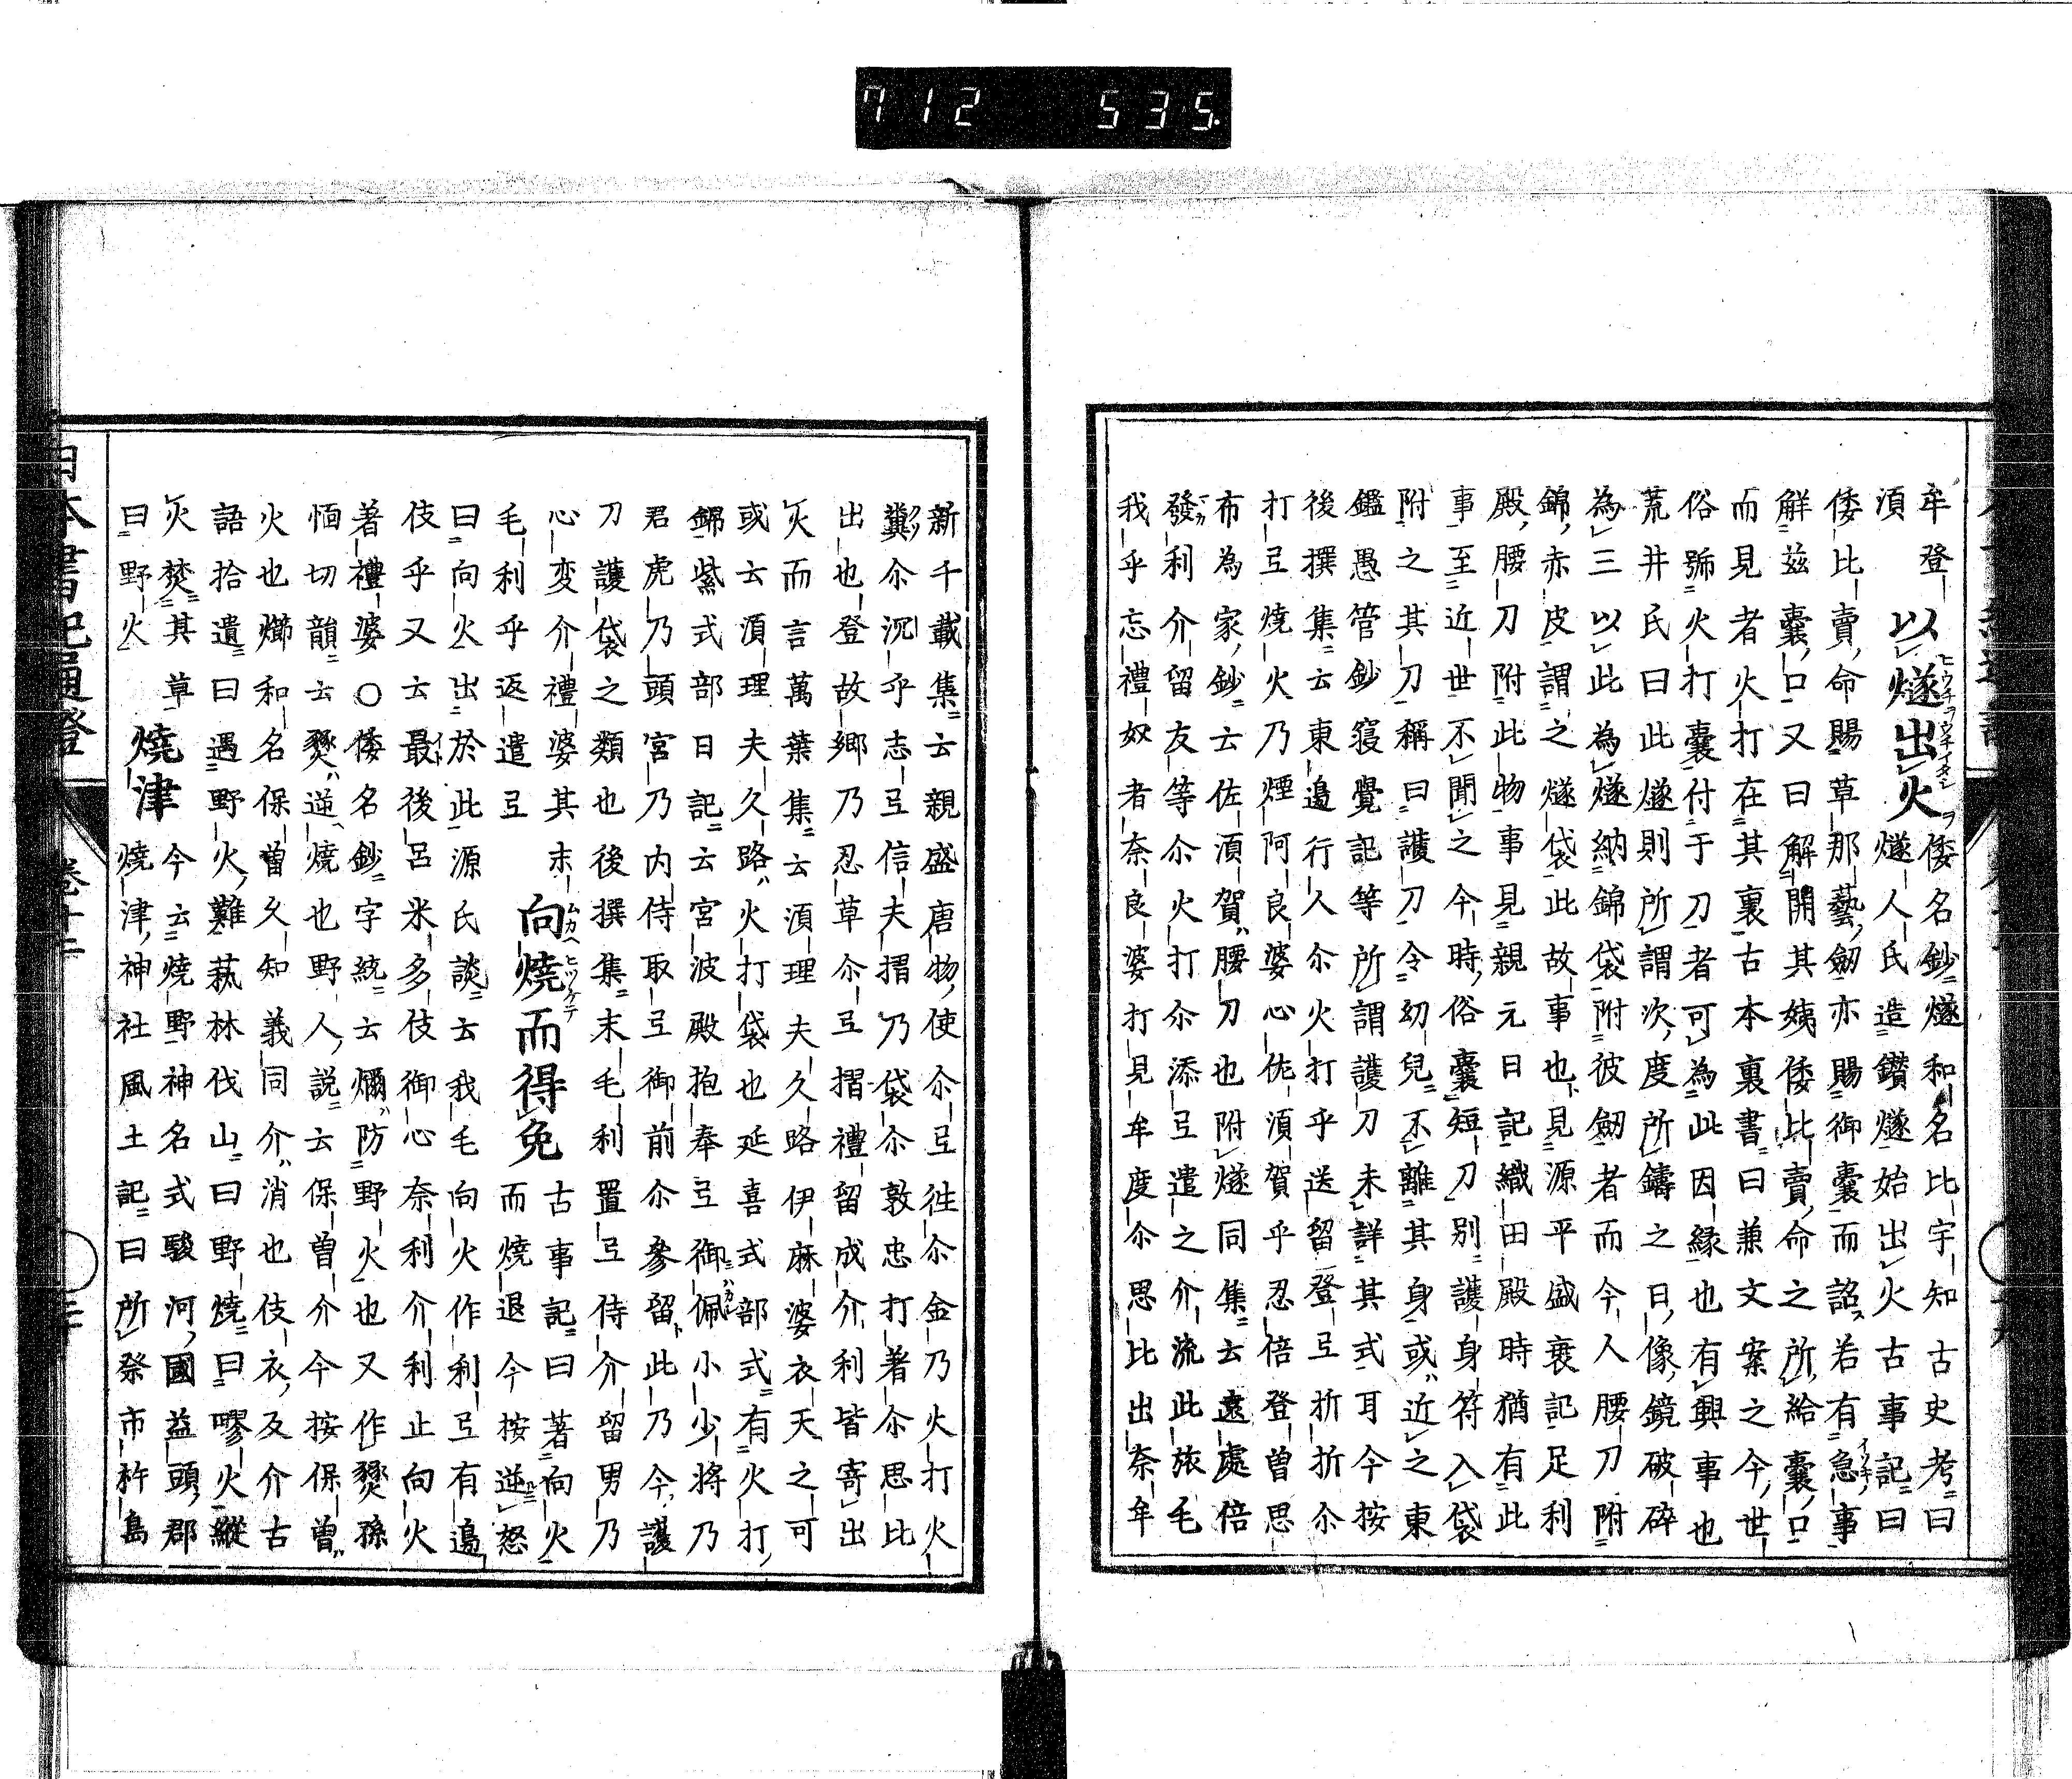 712 535.
牟登 以燧出火 倭名鈔燧和名比宇知古史考曰
湏 燧人氏造鑽燧始出火古事記曰
倭比賣命賜草那藝劒亦賜御囊而詔若有急事
解茲囊口又曰解開其姨倭比賣命之所給囊口
而見者火打在其裏古本裏書曰兼文案之今世
俗號火打囊付于刀者可為此因緣也有興事也
荒井氏曰此燧則所謂次度所鑄之日像鏡破碎
為三以此為燧納錦袋附彼劒者而今人腰刀附
錦赤皮謂之燧袋此故事也見源平盛衰記足利
殿腰刀附此物事見親元日記織田殿時猶有此
事至近世不聞之今時俗囊短刀別護身符入袋
附之其刀稱曰護刀令幼兒不離其身或近之東
鑑愚管鈔寢覺記等所謂護刀未詳其式耳今按
後撰集云東邉行人尒火打乎送留登弖折折尒
打弖燒火乃煙阿良婆心佐湏賀乎忍倍登曾思
布為家鈔云佐湏賀腰刀也附燧同集云遠處倍
發利介留友等尒火打尒添弖遣之介流此旅毛
我乎忘禮奴者奈良婆打見牟度尒思比出奈牟
新千載集云親盛唐物使尒弖徃尒金乃火打火
糞尒沉乎志弖信夫摺乃袋尒敦忠打著尒思比
出也登故郷乃忍草尒弖摺禮留成介利皆寄出
火而言萬葉集云湏理夫久路伊麻婆衣天之可
或云湏理夫久路火打袋也延喜式部式有火打
錦紫式部日記云宮波殿抱奉弖御佩小少將乃
君虎乃頭宮乃内侍取弖御前尒參留此乃今護
刀護袋之類也後撰集末毛利置弖侍介留男乃
心変介禮婆其末 向燒而得免 古事記曰著向火
毛利乎返遣弖 而燒退今按逆怒
曰向火出於此源氏談云我毛向火作利弖有邉
伎乎又云最後呂米多伎御心奈利介利止向火
著禮婆〇倭名鈔字統云爤防野火也又作燹孫
愐切韻云燹逆燒也野人説云保曾介今按保曾
火也㷟和名保曾久知義同介消也伎衣及介古
語拾遺曰遇野火難蓺林伐山曰野燒曰嘐火縱
火焚其草 燒津 今云燒野神名式駿河國益頭郡
曰野火 燒津神社風土記曰所祭市杵島
日本書紀通證 卷十二